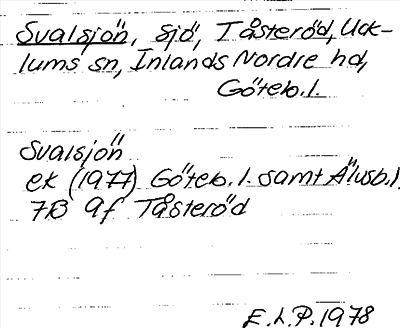 Svalsjön, sjö, Tåsteröd, Uck-
lums sn, Inlands Nordre hd,
Göteb.l.
Svalsjön
ek (1977) Göteb.l. samt Älvsb.l.
7B 9f Tåsteröd
E.L.P. 1978